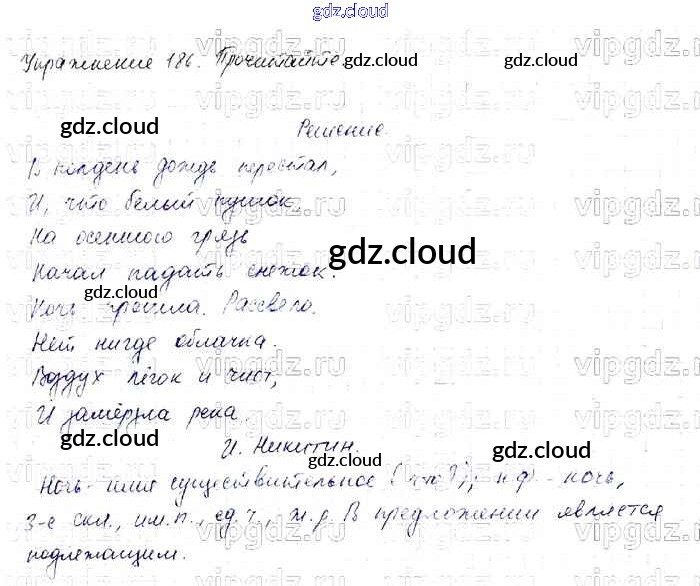 gdz.cloud
Упражнение 186. Прочитайте.
gdz.cloud
gdz.cloud
Решение.
В полдень дождь перестал,
И, что белый пушок,
На осеннюю грязь
gdz.cloud
Начал падать снежок.
gdz.cloud
Ночь прошла. Рассвело.
Нет нигде облачка.
Воздух лёгок и чист,
И замёрзла река.
gdz.cloud
И. Никитин.
gdz.cloud
gdz.cloud
Ночь - имя существительное (что?), н.ф. - ночь,
3-е скл., им.п., ед.ч., ж.р. В предложении является
подлежащим.
vipgdz.ru